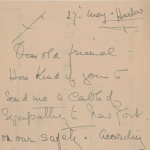 27th May. Harlow
Dear old friend -
How kind of you to
send me a Cable of
Sympathy to New York
on our safety. According